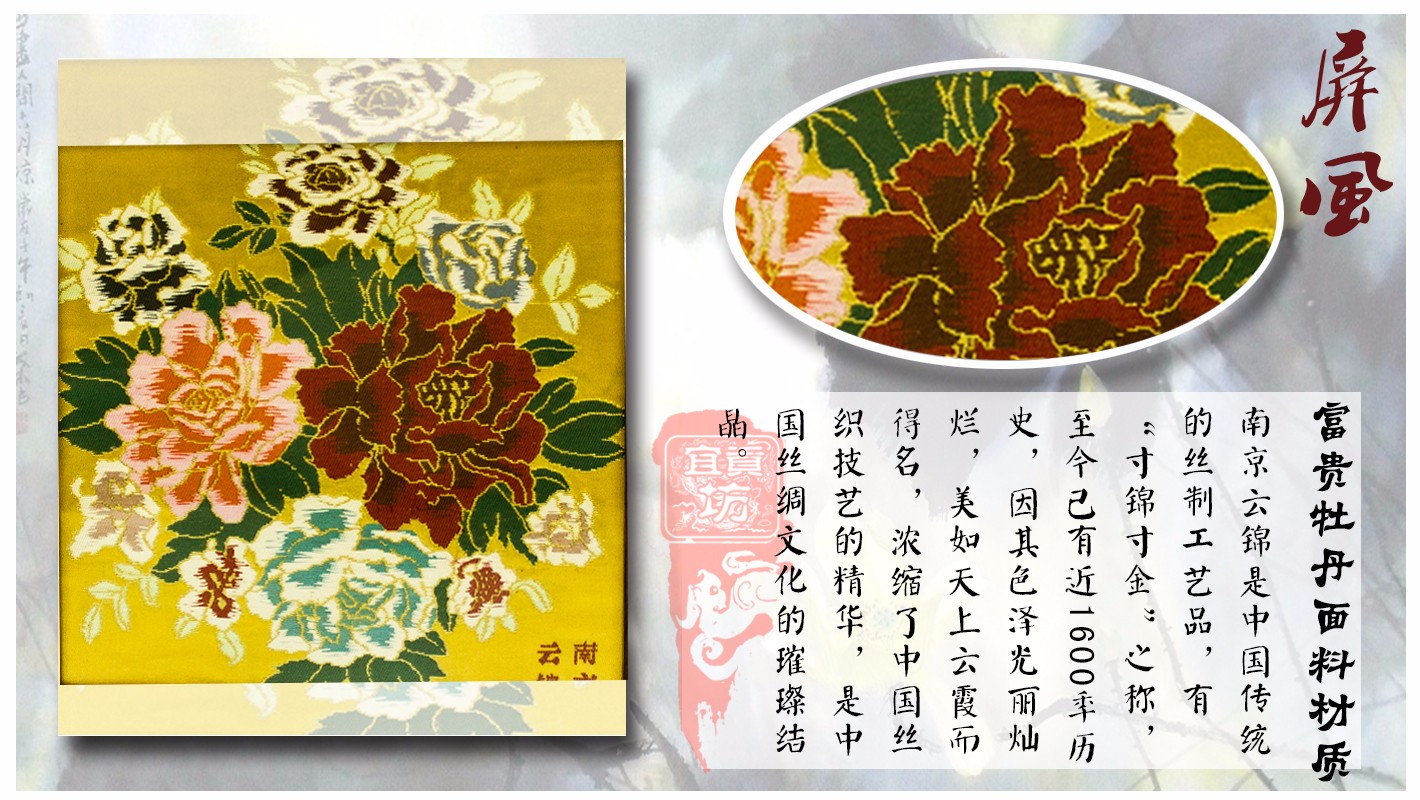 屏風
富贵牡丹面料材质
南京云锦是中国传统
的丝制工艺品，有
“寸锦寸金”之称，
至今已有近1600年历
史，因其色泽光丽灿
烂，美如天上云霞而
得名，浓缩了中国丝
织技艺的精华，是中
国丝绸文化的璀璨结
晶。
南
云